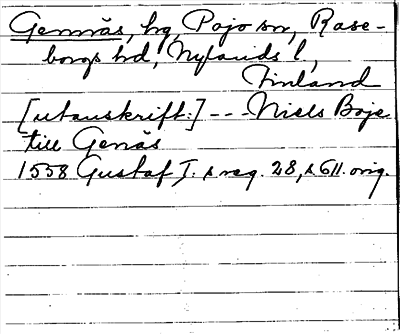 Gennäs, hg, Pojo sn, Rase-
borgs hd, Nylands l,
Finland
[utanskrift:] --- Niels Boje
till Genäs
1558 Gustaf I. s reg. 28, s 611. orig.